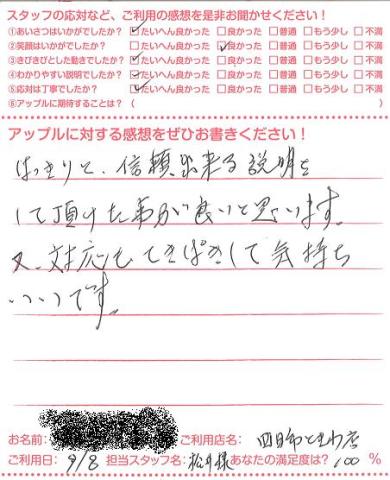 スタッフの応対など、ご利用の感想を是非お聞かせください！
①あいさつはいかがでしたか？ ☑たいへん良かった □良かった □普通 □もう少し □不満
②笑顔はいかがでしたか？ □たいへん良かった ☑良かった □普通 □もう少し □不満
③きびきびとした動きでしたか？ ☑たいへん良かった □良かった □普通 □もう少し □不満
④わかりやすい説明でしたか？ ☑たいへん良かった □良かった □普通 □もう少し □不満
⑤応対は丁寧でしたか？ ☑たいへん良かった □良かった □普通 □もう少し □不満
⑥アップルに期待することは？（
アップルに対する感想をぜひお書きください！
はっきりと、信頼出来る説明を
して頂けた事が良いと思います。
又、対応もてきぱきして気持ち
いいです。
お名前： ご利用店名： 四日市ときわ店
ご利用日： 9/8 担当スタッフ名： 松井様 あなたの満足度は？ 100 %